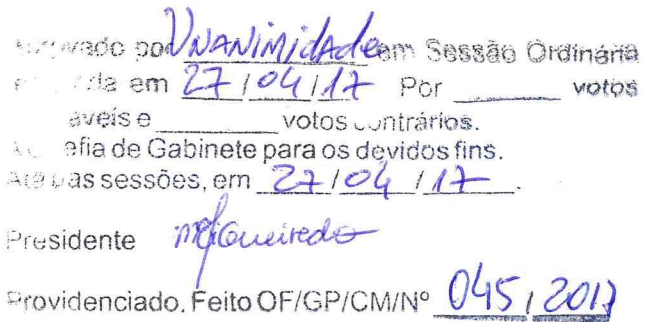 por UNANIMIDADE em Sessão Ordinária
em 27/04/17 Por ______ votos
aveis e ________ votos contrários.
efia de Gabinete para os devidos fins.
das sessões, em 27/04/17.
Presidente
Providenciado, Feito OF/GP/CM/Nº 045/2017